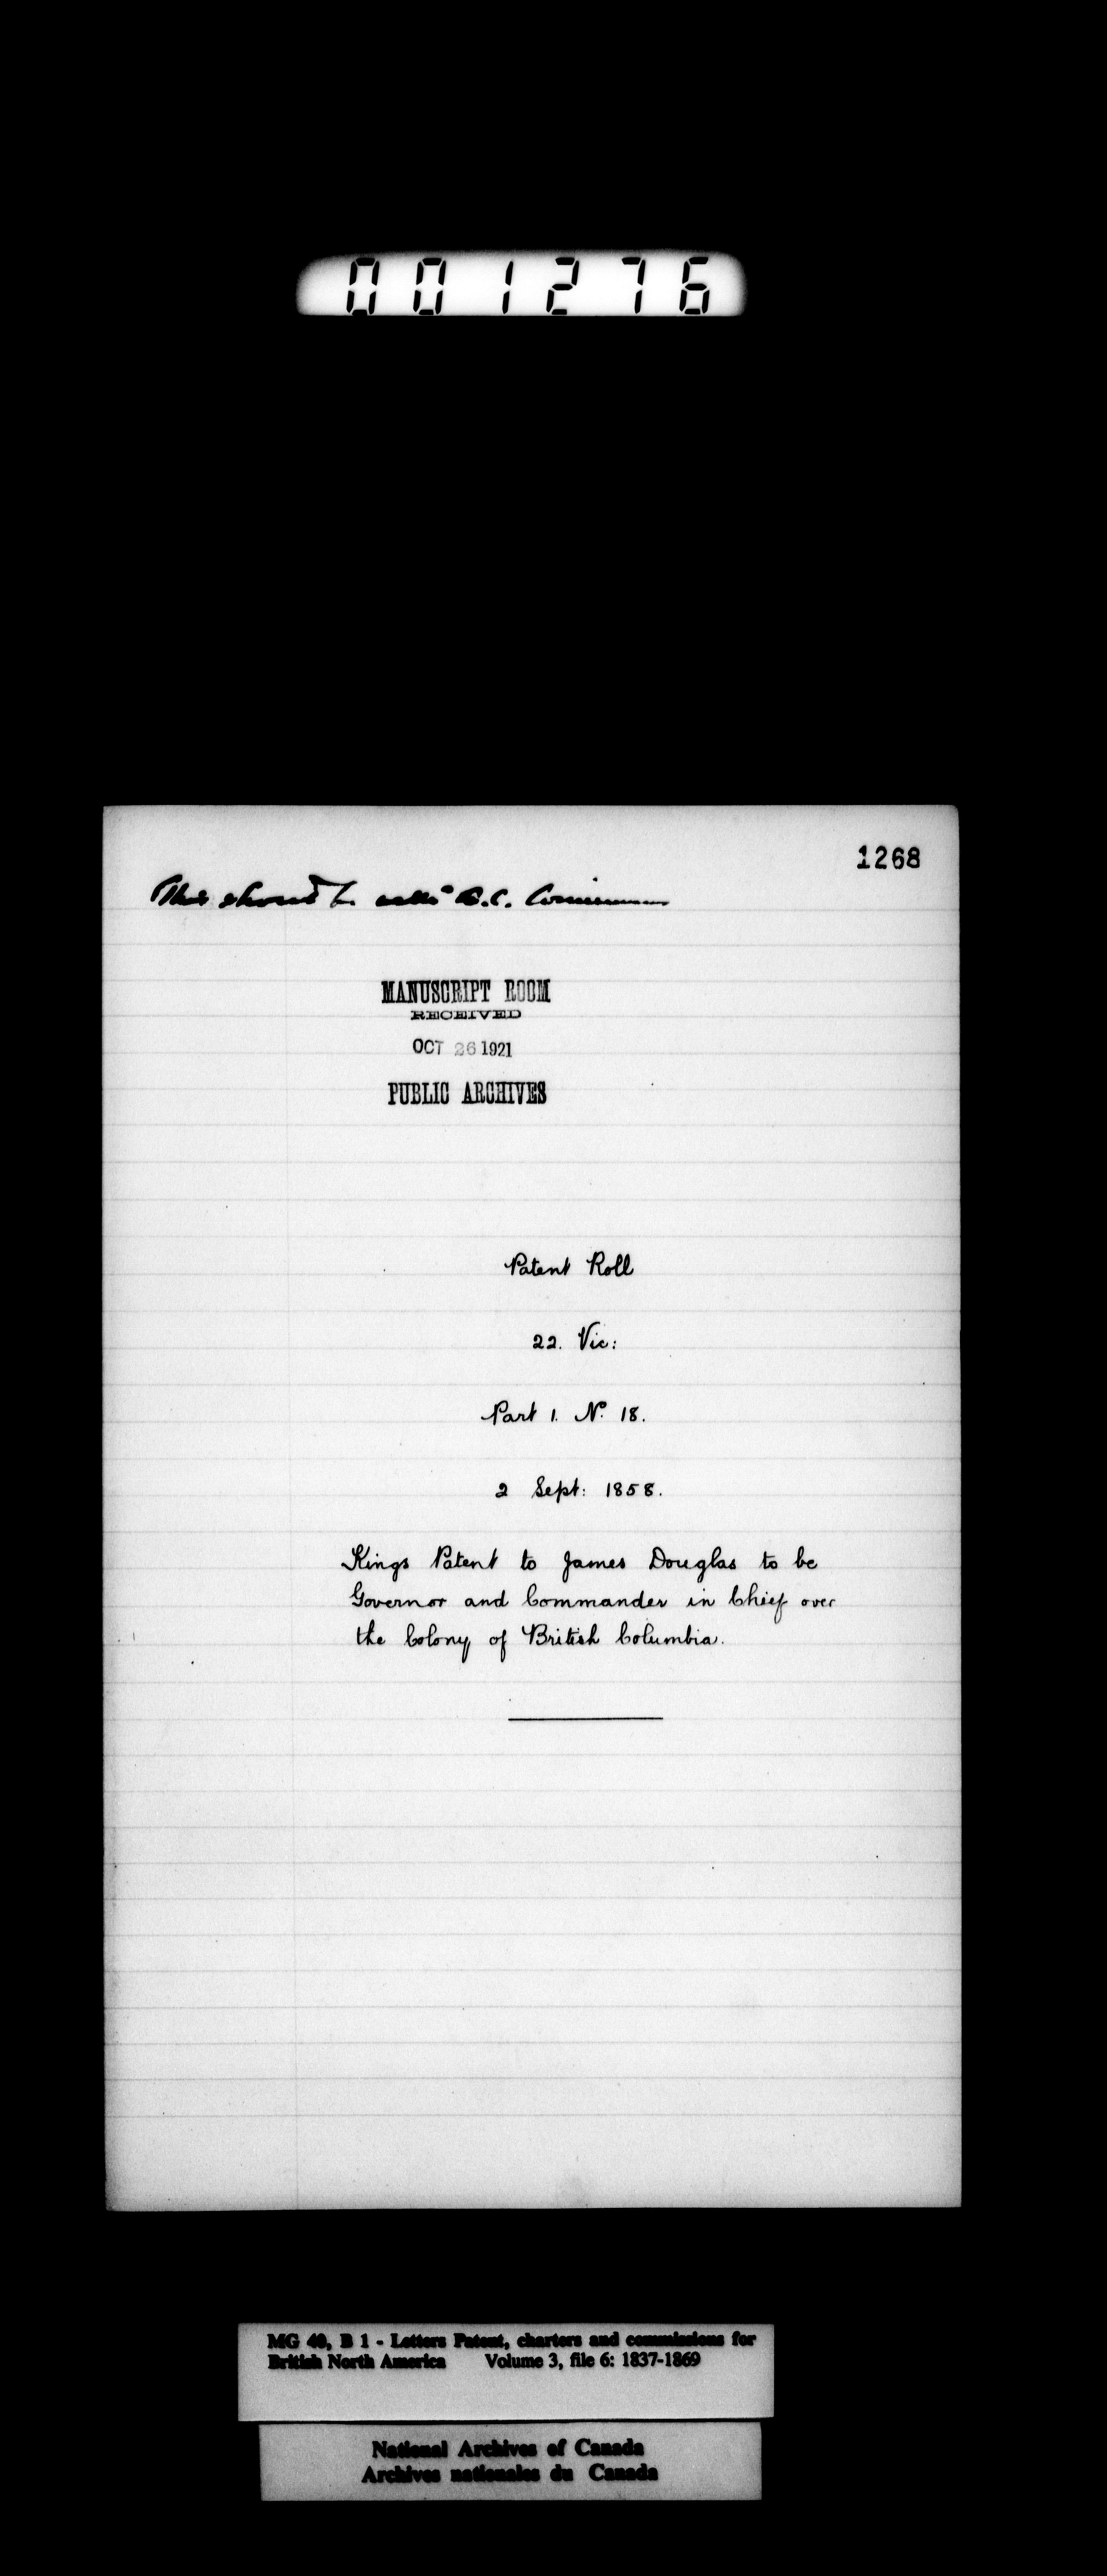 001276
1268
This should be with B.C.
MANUSCRIPT ROOM
RECEIVED
OCT 26 1921
PUBLIC ARCHIVES
Patent Roll
22. Vic:
Part 1. No. 18.
2 Sept: 1858.
Kings Patent to James Douglas to be
Governor and Commander in Chief over
the Colony of British Columbia.
MG 40, B 1 - Letters Patent, charters and commissions for
British North America Volume 3, file 6: 1837-1869
National Archives of Canada
Archives nationales du Canada